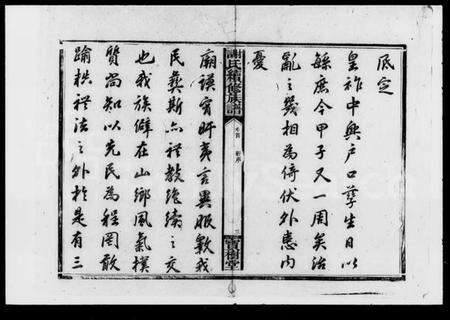 底定
皇祚中興戶口孳生日以
緜庶今甲子又一周矣治
亂之幾相為倚伏外患內
憂
謝氏續修族譜
卷首
新序
寶樹堂
廟謨宵旰夷言異服斁我
民彝斯亦禮教絕續之交
也我族僻在山鄉風氣樸
質尚知以先民為程罔敢
踰軼禮法之外於是有三